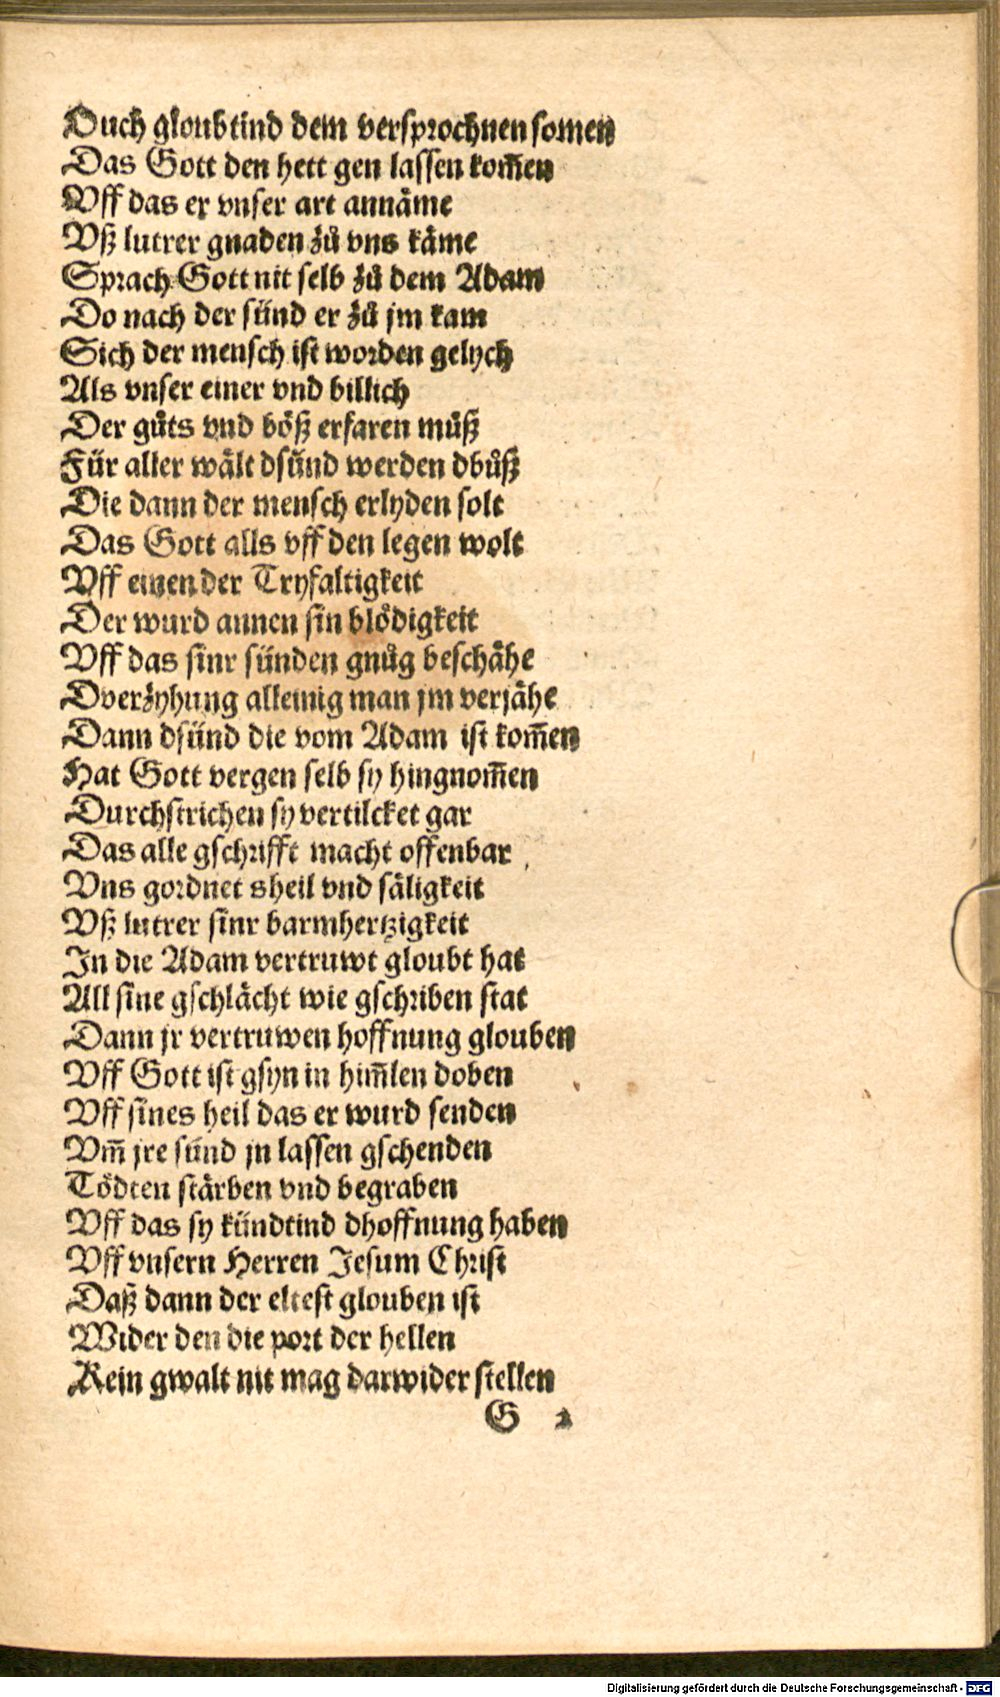 Ouch gloubtind dem versprochnen somen
Das Gott den hett gen lassen kom̄en
Vff das er vnser art annäme
Vß lutrer gnaden zů vns käme
Sprach Gott nit selb zů dem Adam
Do nach der sünd er zů jm kam
Sich der mensch ist worden gelych
Als vnser einer vnd billich
Der gůts vnd böß erfaren můß
Für aller wält dsünd werden dbůß
Die dann der mensch erlyden solt
Das Gott alls vff den legen wolt
Vff einen der Tryfaltigkeit
Der wurd annen sin blödigkeit
Vff das sinr sünden gnůg beschähe
Dverzyhung alleinig man jm verjähe
Dann dsünd die vom Adam ist kom̄en
Hat Gott vergen selb sy hingnom̄en
Durchstrichen sy vertilcket gar
Das alle gschrifft macht offenbar
Vns gordnet sheil vnd säligkeit
Vß lutrer sinr barmhertzigkeit
In die Adam vertruwt gloubt hat
All sine gschlächt wie gschriben stat
Dann jr vertruwen hoffnung glouben
Vff Gott ist gsyn in him̄len doben
Vff sines heil das er wurd senden
Vm̄ jre sünd jn lassen gschenden
Tödten stärben vnd begraben
Vff das sy kündtind dhoffnung haben
Vff vnsern Herren Jesum Christ
Daß dann der eltest glouben ist
Wider den die port der hellen
Kein gwalt nit mag darwider stellen
G 2
Digitalisierung gefördert durch die Deutsche Forschungsgemeinschaft - DFG